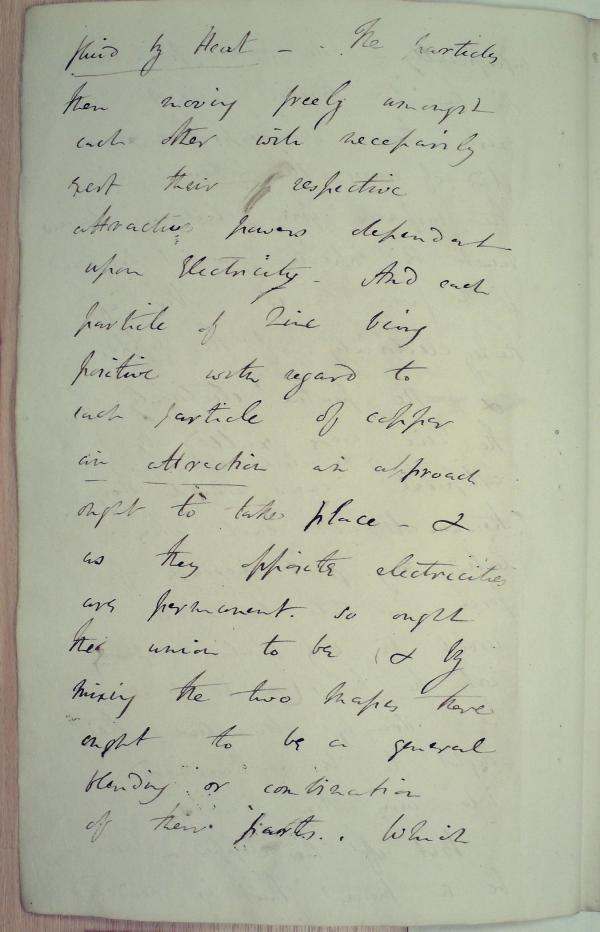 fluid by Heat – . The particles
then moving freely amongst
each other will necessarily
exert their respective
attractive powers dependent
upon Electricity. And each
particle of Zinc being
positive with regard to
each particle of copper
an attraction an approach
ought to take place – &
as they opposite electricities
are permanent. so ought
the union to be & by
mixing the two masses there
ought to be a general
blending or combination
of their parts. . Which